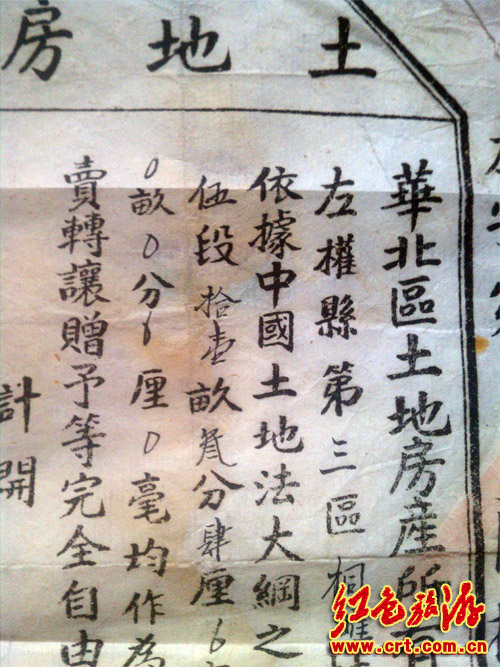 土地房
華北區土地房產所
左權縣第三區桐
依據中國土地法大綱之
伍段拾壹畝分肆厘
0畝0分厘0毫均作為
賣轉讓贈予等完全自由
計開
红色旅游
www.crt.com.cn